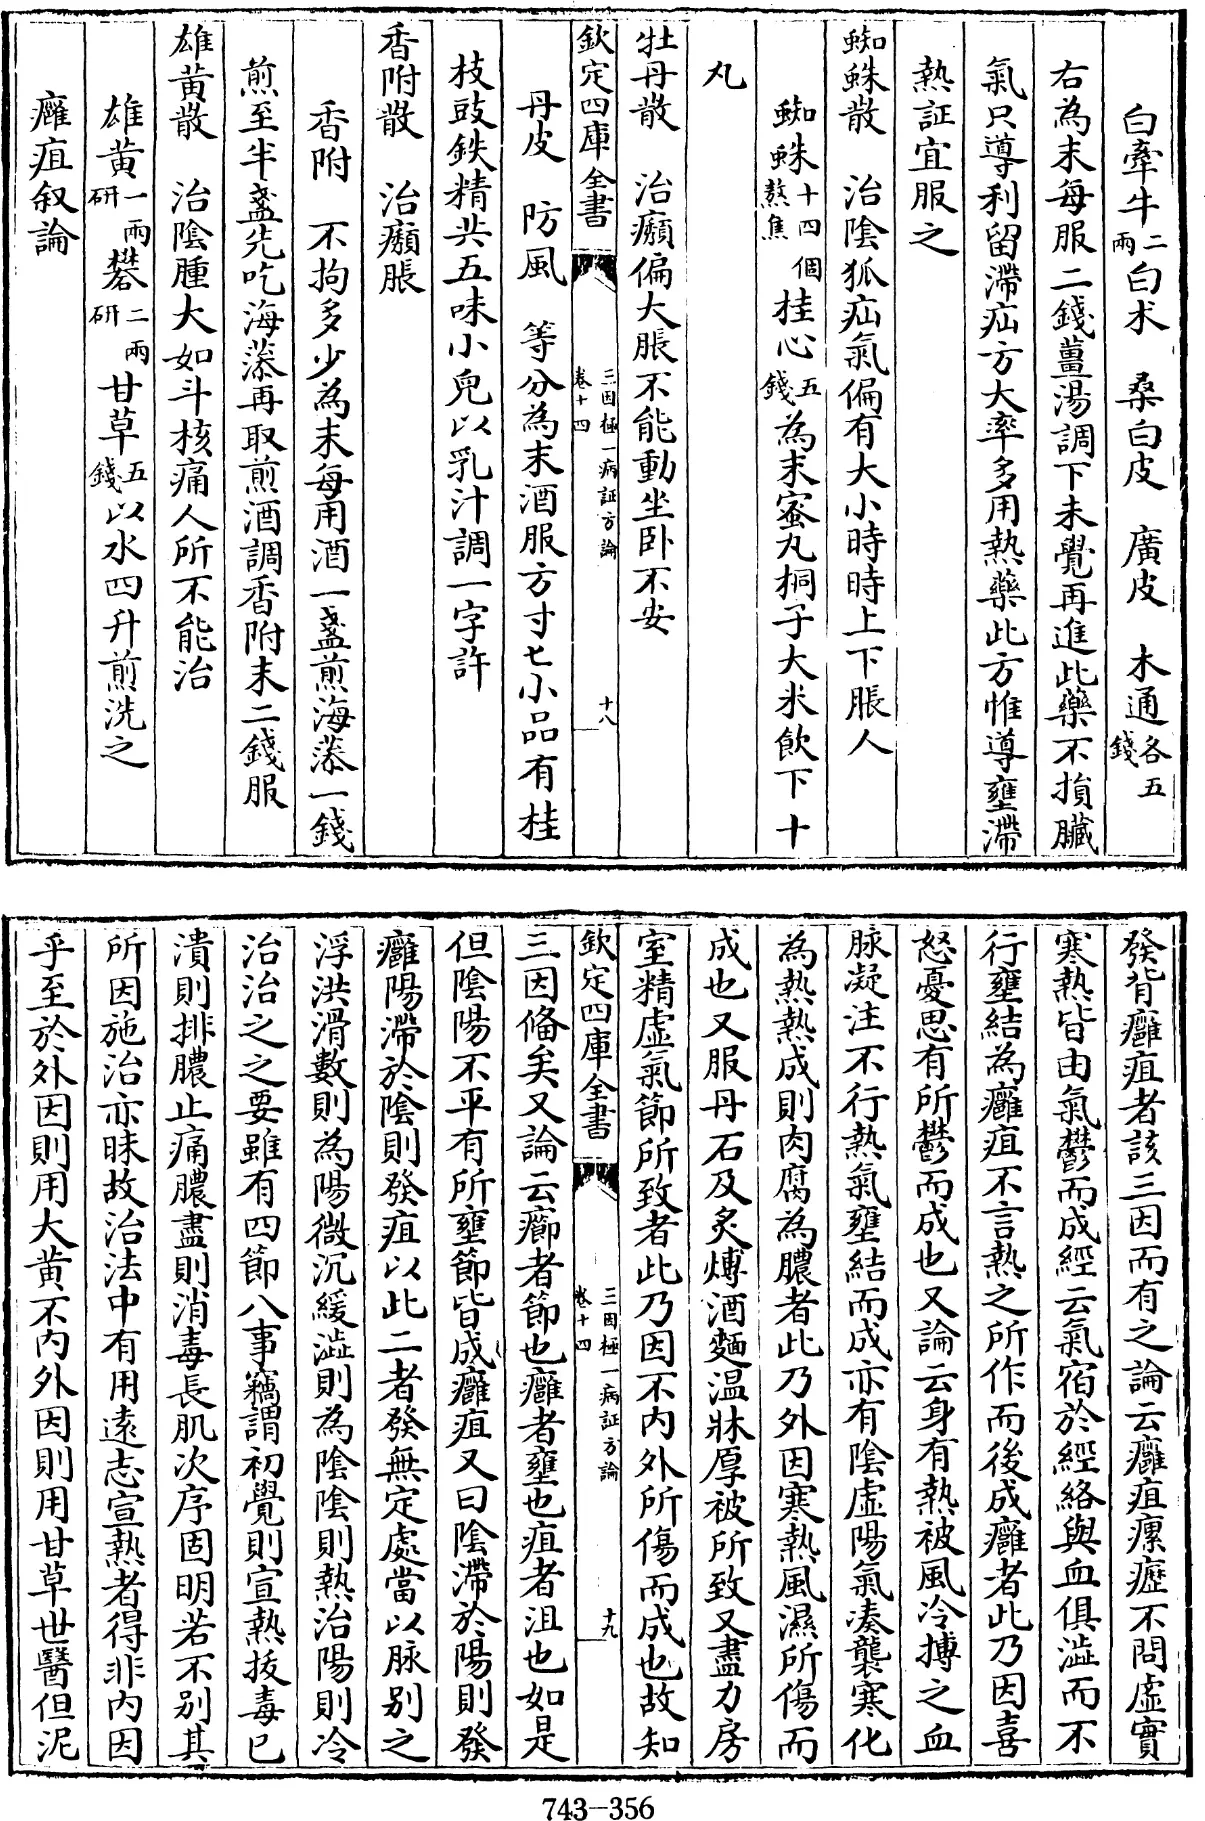 白牽牛二兩白术　桑白皮　廣皮　木通各五錢
右為末每服二錢薑湯調下未覺再進此藥不損臟
氣只導利留滯疝方大率多用熱藥此方惟導壅滯
熱証宜服之
蜘蛛散　治陰狐疝氣偏有大小時時上下脹人
蜘蛛十四個熬焦桂心五錢為末蜜丸桐子大米飲下十
丸
牡丹散　治㿗偏大脹不能動坐卧不安
欽定四庫全書　三因極一病証方論卷十四　十八
丹皮　防風　等分為末酒服方寸匕小品有桂
枝豉鉄精共五味小兒以乳汁調一字許
香附散　治㿗脹
香附　不拘多少為末每用酒一盞煎海藻一錢
煎至半盞先吃海藻再取煎酒調香附末二錢服
雄黃散　治陰腫大如斗核痛人所不能治
雄黃一兩研礬二兩研甘草五錢以水四升煎洗之
癰疽叙論
發背癰疽者該三因而有之論云癰疽瘰癧不問虛實
寒熱皆由氣鬱而成經云氣宿於經絡與血俱澁而不
行壅結為癰疽不言熱之所作而後成癰者此乃因喜
怒憂思有所鬱而成也又論云身有熱被風冷搏之血
脉凝注不行熱氣壅結而成亦有陰虛陽氣凑襲寒化
為熱熱成則肉腐為膿者此乃外因寒熱風濕所傷而
成也又服丹石及炙煿酒麵温牀厚被所致又盡力房
室精虛氣節所致者此乃因不内外所傷而成也故知
欽定四庫全書　三因極一病証方論卷十四　十九
三因備矣又論云癤者節也癰者壅也疽者沮也如是
但陰陽不平有所壅節皆成癰疽又曰陰滯於陽則發
癰陽滯於陰則發疽以此二者發無定處當以脉别之
浮洪滑數則為陽微沉緩澁則為陰陰則熱治陽則冷
治治之之要雖有四節八事竊謂初覺則宣熱拔毒已
潰則排膿止痛膿盡則消毒長肌次序固明若不别其
所因施治亦昧故治法中有用遠志宣熱者得非内因
乎至於外因則用大黃不内外因則用甘草世醫但泥
743-356